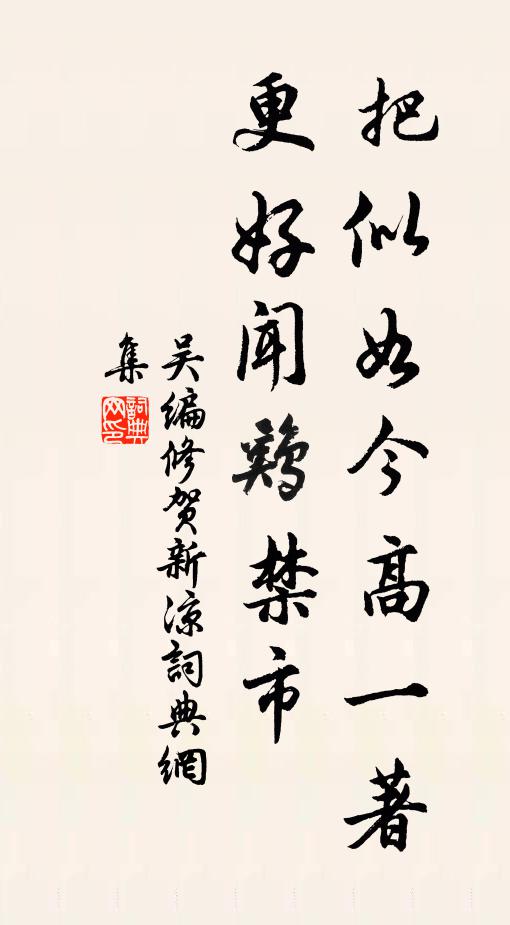 把似如今高一著
更好聞鷄禁市
吴編修賀新涼詞典網
集
詞典
网印